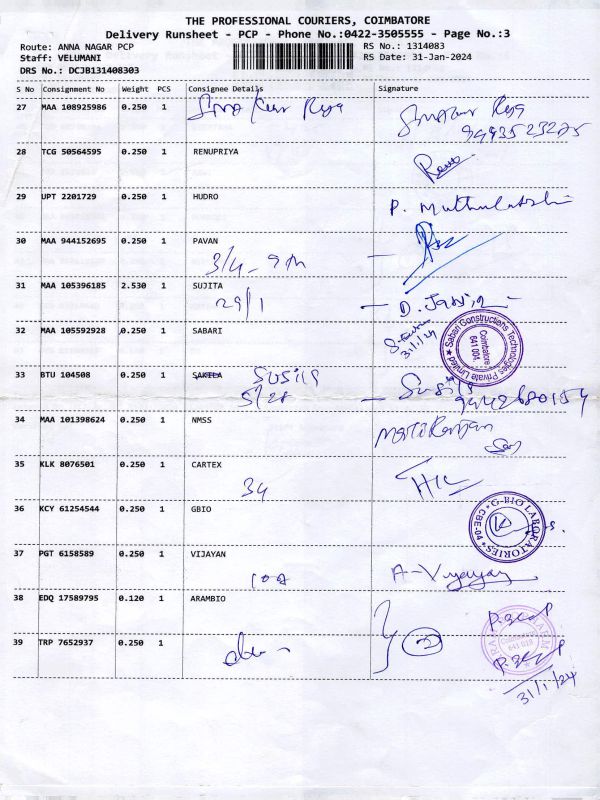 THE PROFESSIONAL COURIERS, COIMBATORE
Delivery Runsheet - PCP - Phone No.:0422-3505555 - Page No.:3
Route: ANNA NAGAR PCP RS No.: 1314083
Staff: VELUMANI RS Date: 31-Jan-2024
DRS No.: DCJB131408303
S No Consignment No Weight PCS Consignee Details Signature
27 MAA 108925986 0.250 1
9993523275
28 TCG 50564595 0.250 1 RENUPRIYA
Renu
29 UPT 2201729 0.250 1 HUDRO
P. Muthulakshmi
30 MAA 944152695 0.250 1 PAVAN
3/4
31 MAA 105396185 2.530 1 SUJITA
29/1
32 MAA 105592928 0.250 1 SABARI
31/1/24
Sabari Constructions Technologies Private Limited
Coimbatore
641 004.
33 BTU 104508 0.250 1 SAKELA Susila
5/28 Susila
9442680154
34 MAA 101398624 0.250 1 NMSS
35 KLK 8076501 0.250 1 CARTEX
34
36 KCY 61254544 0.250 1 GBIO
G-BIO LABORATORIES
37 PGT 6158589 0.250 1 VIJAYAN
A-Vijayan
38 EDQ 17589795 0.120 1 ARAMBIO
39 TRP 7652937 0.250 1
31/1/24